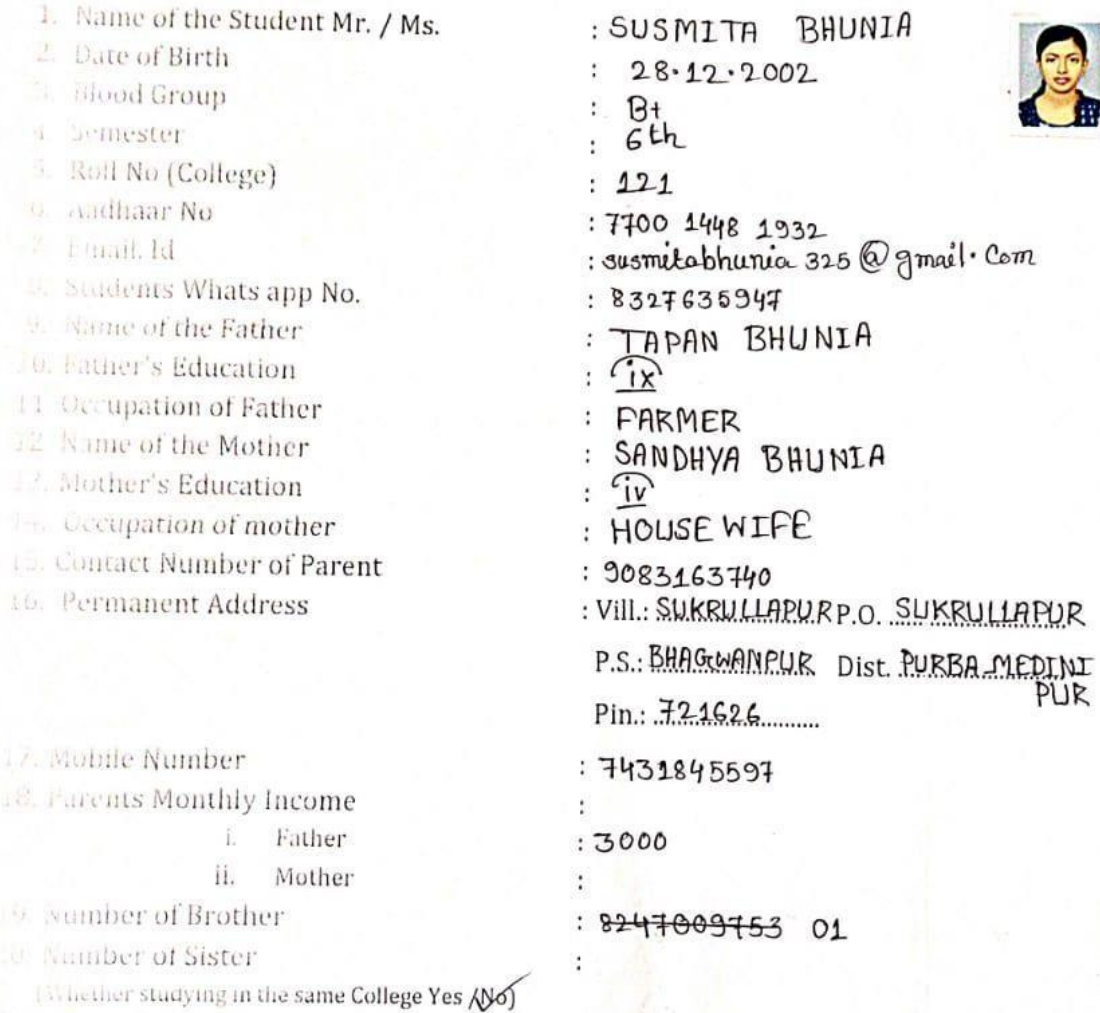 1. Name of the Student Mr. / Ms. : SUSMITA BHUNIA
2. Date of Birth : 28.12.2002
3. Blood Group : B+
4. Semester : 6th
5. Roll No (College) : 121
6. Aadhaar No : 7700 1448 1932
7. Email. Id : susmitabhunia 325 @ gmail. Com
8. Students Whats app No. : 8327635947
9. Name of the Father : TAPAN BHUNIA
10. Father's Education : ix
11 Occupation of Father : FARMER
12 Name of the Mother : SANDHYA BHUNIA
13. Mother's Education : iv
14. Occupation of mother : HOUSE WIFE
15. Contact Number of Parent : 9083163740
16. Permanent Address : Vill.: SUKRULLAPUR P.O. SUKRULLAPUR
P.S.: BHAGWANPUR Dist. PURBA MEDINI
PUR
Pin.: 721626
17. Mobile Number : 7431845597
18. Parents Monthly Income :
i. Father : 3000
ii. Mother :
19. Number of Brother : 8247009753 01
20. Number of Sister :
(Whether studying in the same College Yes /No)